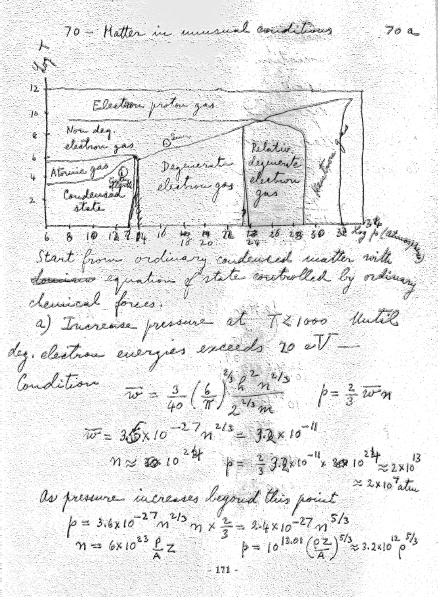 70 - Matter in unusual conditions 70 a
log T
12
10
8
6
4
2
Electron proton gas
Non deg.
electron gas
Atomic gas
Condensed
state
Sun
Degenerate
electron gas
Relativ.
degenerate
electron
gas
Neutron gas
6 8 10 12 14 16 18 20 24 30 32
log p (atmospheres)
Start from ordinary condensed matter with
equation of state controlled by ordinary
chemical forces.
a) Increase pressure at T<1000 Until
deg. electron energies exceeds 20 eV —
Condition w̄ = 3/40 (6/π)^2/3 h² n^2/3 / 2^2/3 m p = 2/3 w̄ n
w̄ = 3.6×10^-27 n^2/3 = 3.2×10^-11
n ≈ 10^24 p = 2/3 3.2×10^-11 × 10^24 ≈ 2×10^13
≈ 2×10^7 atm
As pressure increases beyond this point
p = 3.6×10^-27 n^2/3 n × 2/3 = 2.4×10^-27 n^5/3
n = 6×10^23 ρ/A Z p = 10^13.01 (ρZ/A)^5/3 ≈ 3.2×10^12 ρ^5/3
- 171 -